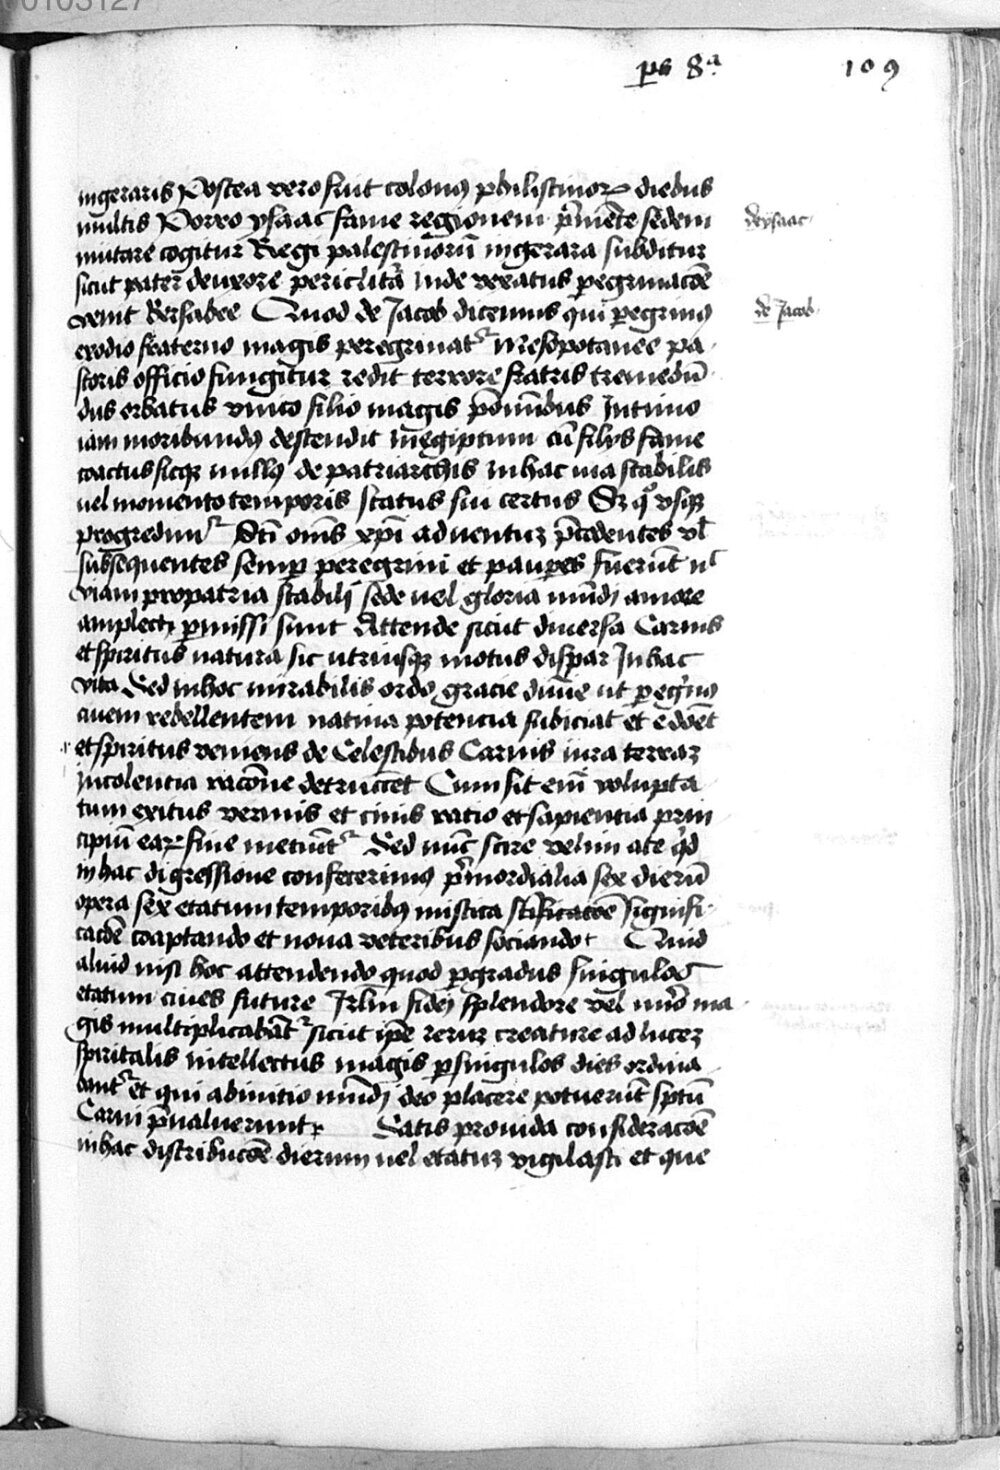 ps 8ª 109
ingeraris Postea vero fuit colonꝯ philistinoꝝ diebus
multis Porro ysaac fame regionem p̄mēte sedem
deysaac
mutare cogitur Regi palestinorū ingerara subditur
sicut pater deuxore periclitat̄ Inde vexatus pegrinacōe
venit Bersabee Quid de Jacob dicemus qui pegrinꝯ
de Jacob
exodio fraterno magis peregrinat᷑ Mesopotanee pa
storis officio fungitur redit terrore fratris tremebū
dus orbatus vnico filio magis
iam moribundꝯ descendit inegiptum cū filijs fame
coactus sicqꝫ nullꝯ de patriarchis inhac via stabilis
uel momento temporis status sui certus Sꝫ qͦ vsqꝫ
progredim᷑ Sc̄i oīns xp̄i aduentuꝫ p̄cedentes vl̄
subsequentes semꝑ peregrini et pauꝑes fuerūt nͨ
viam propatria stabili sede uel gloria mūdi amore
amplecti ꝑmissi sunt Attende sicut diuersa Carnis
et spiritus natura sic utriusqꝫ motus dispar Inhac
vita Sed inhoc mirabilis ordo gracie diuīe ut ꝑegͥnꝯ
ciuem rebellentem natiua potencia subiciat et edoēt
et spiritus veniens de Celestibus Carnis iura terraꝫ
incolentia racōne detruncet Cum sit eīm volupta
tum exitus vermis et cinis ratio et sapientia prin
cipiū eaꝝ fine metiūt᷑ Sed nūc scire velim a te qͥd
inhac digressione confecerimꝯ pͥmordialia sex dierū
opera sex etatum temporibꝯ mistica significacōe signifi
cacōe coaptando et noua veteribus sociando Quid
aliud nisi hoc attendendo quod ꝑgradus singulos
etatum ciues future Jrlm̄ fidei splendore vel nūͦ ma
gis multiplicabāt᷑ sicut ip̄e reruꝫ creature ad luceꝫ
spiritalis intellectus magis ꝑsingulos dies ordina
bant᷑ et qui abinitio mūdi deo placere potuerūt sp̄tū
Carni p̄ualuerunt Satis prouida consideracōe
inhac distribucōe dierum uel etatuꝫ vigilasti et que